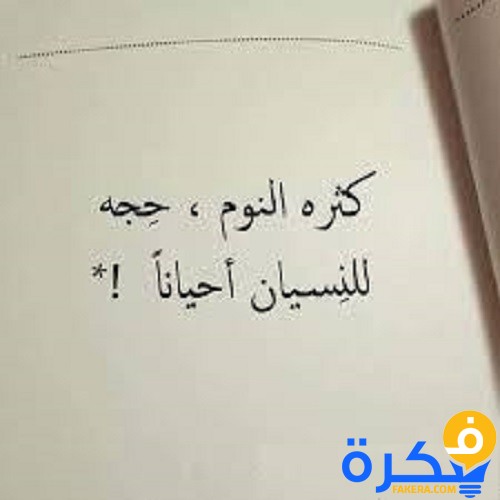 كثره النوم ، حِجه
للنِسيان أحياناً !*
فكرة
FAKERA.COM